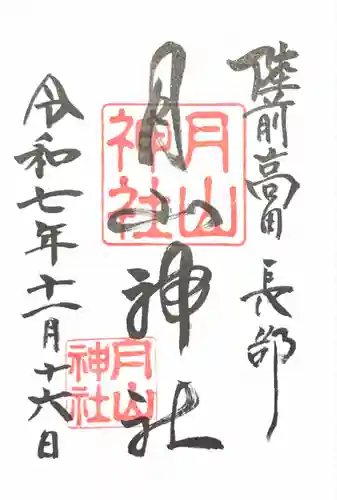 陸前高田 長部
月山神社
令和七年十一月十六日
月山
神社
月山
神社